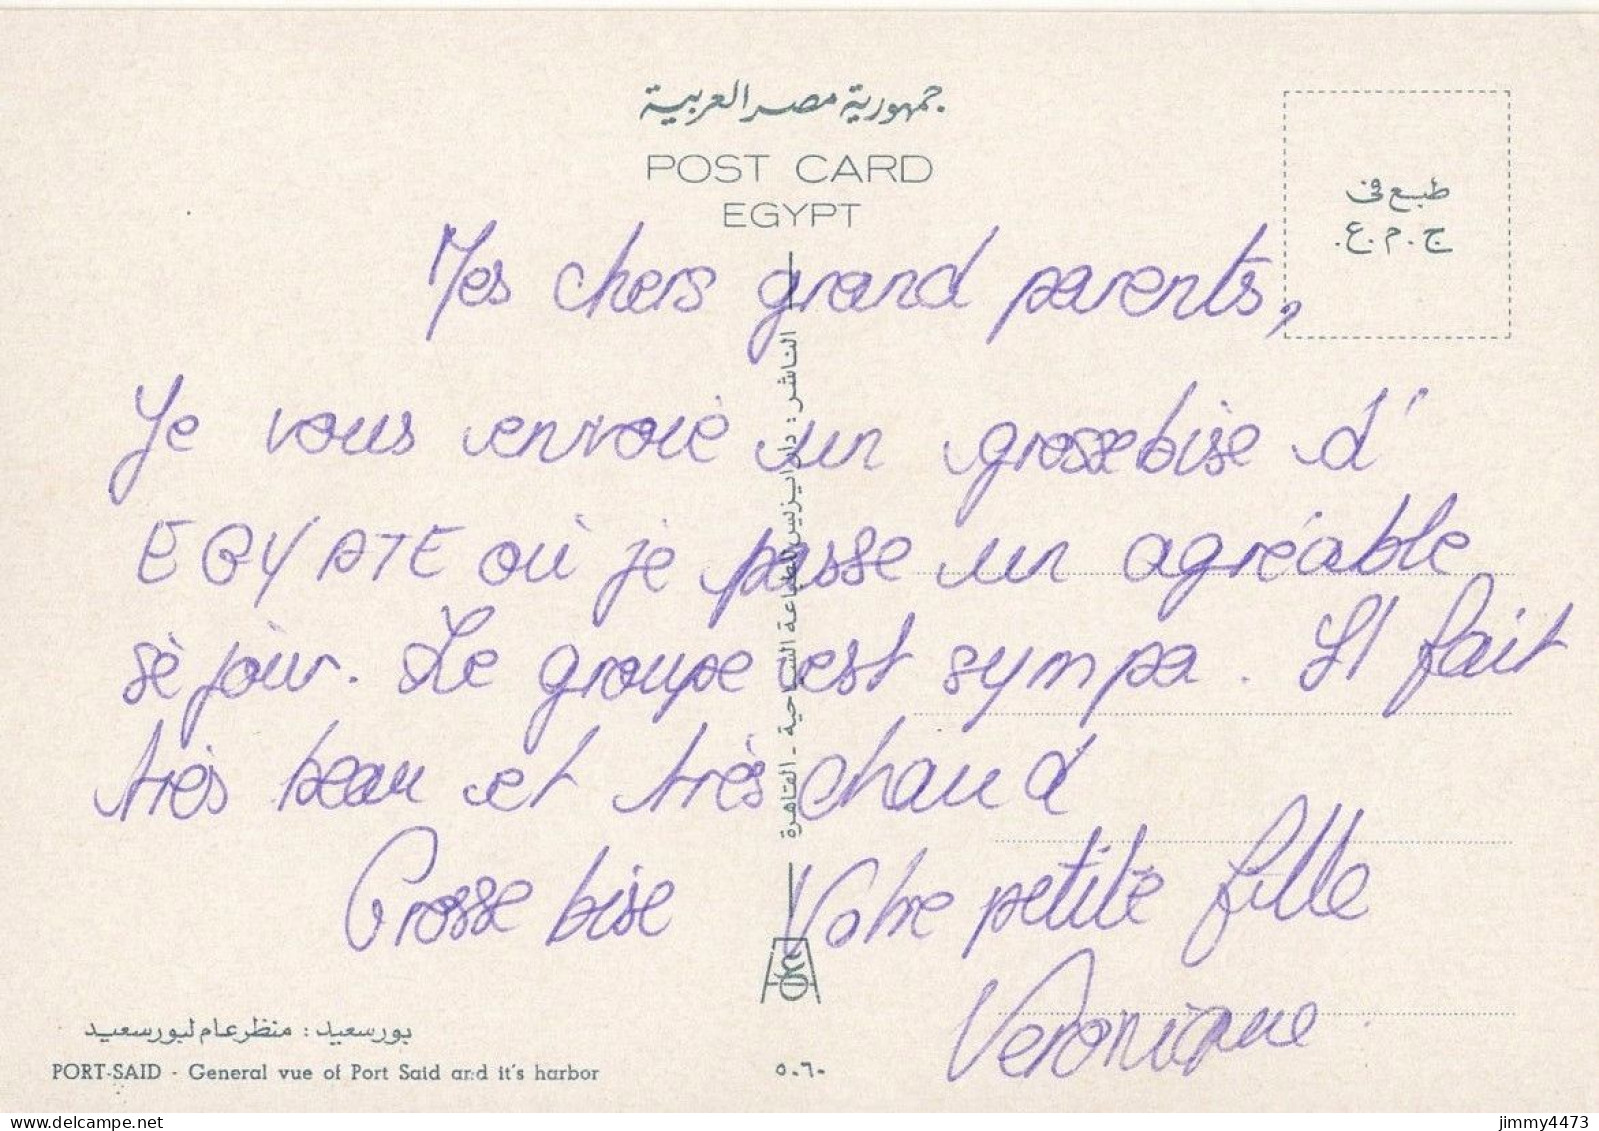 جمهورية مصر العربية
POST CARD
EGYPT
طبع في
ج.م.ع.
Mes chers grand parents,
Je vous envoie un grosse bise d'
EGYPTE où je passe un agréable
séjour. Le groupe est sympa. Il fait
très beau et très chaud
Grosse bise Votre petite fille
Veronique.
الناشر: دار ايزيس للطباعة السياحية - القاهرة
بورسعيد: منظر عام لبورسعيد
PORT-SAID - General vue of Port Said and it's harbor
٥٠٦٠
jimmy4473